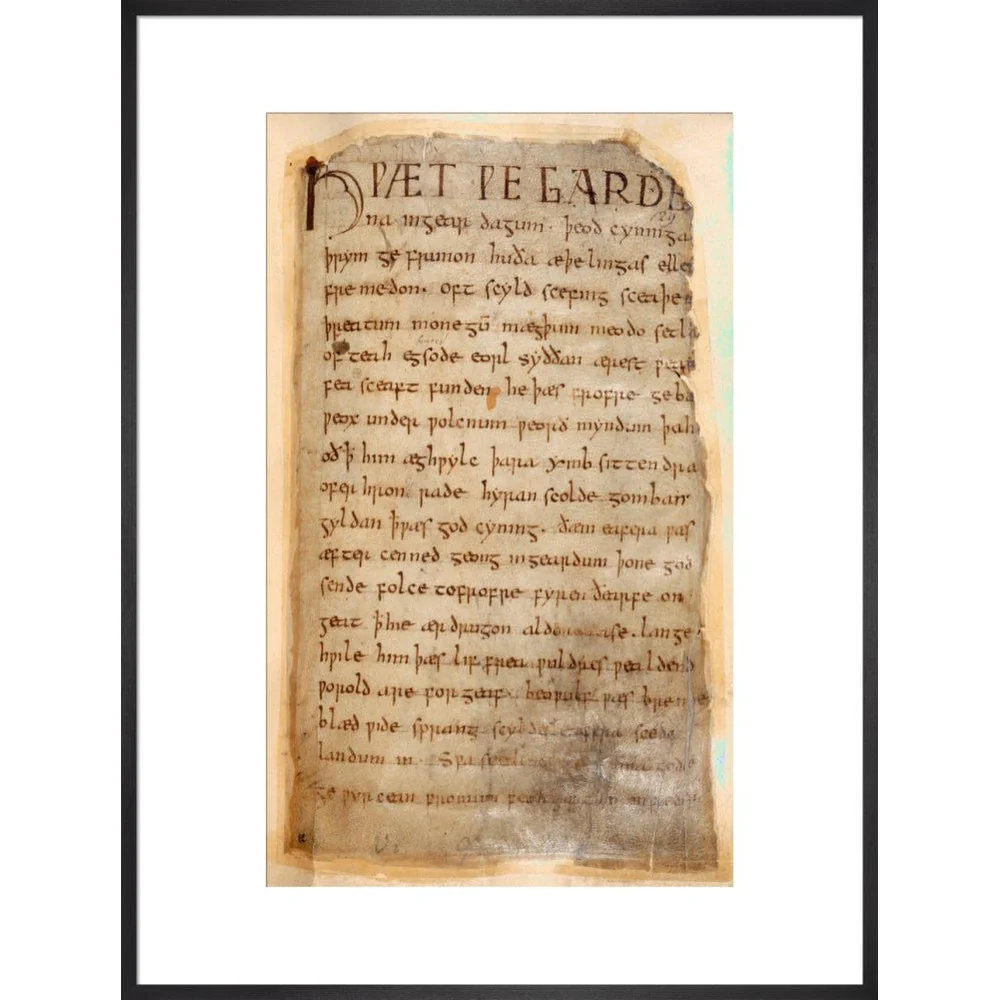 HǷÆT ǷE GARDE
na ingear dagum. þeod cyninga
þrym ge frunon huða æþelingas elle
fremedon. oft scyld scefing sceaþe
þreatum monegū mægþum meodo setla
of teah egsode eorl syððan ærest
fea sceaft funden he þæs frofre geba
ƿeox under ƿolcnum ƿeorð myndum þah
oð ꝥ him æghƿylc þara ymb sittendra
ofer hron rade hyran scolde gomban
gyldan ꝥ ƿæs god cyning. ðæm eafera ƿæs
æfter cenned geong in geardum þone god
sende folce tofrofre fyren ðearfe on
geat ꝥ hie ær drugon aldor ase. lange
hƿile him þæs lif frea ƿuldres ƿealdend
ƿorold are for geaf. beoƿulf ƿæs breme
blæd ƿide sprang scyldes eafera scede
landum in. Sƿa
ge ƿyrcean fromum feoh